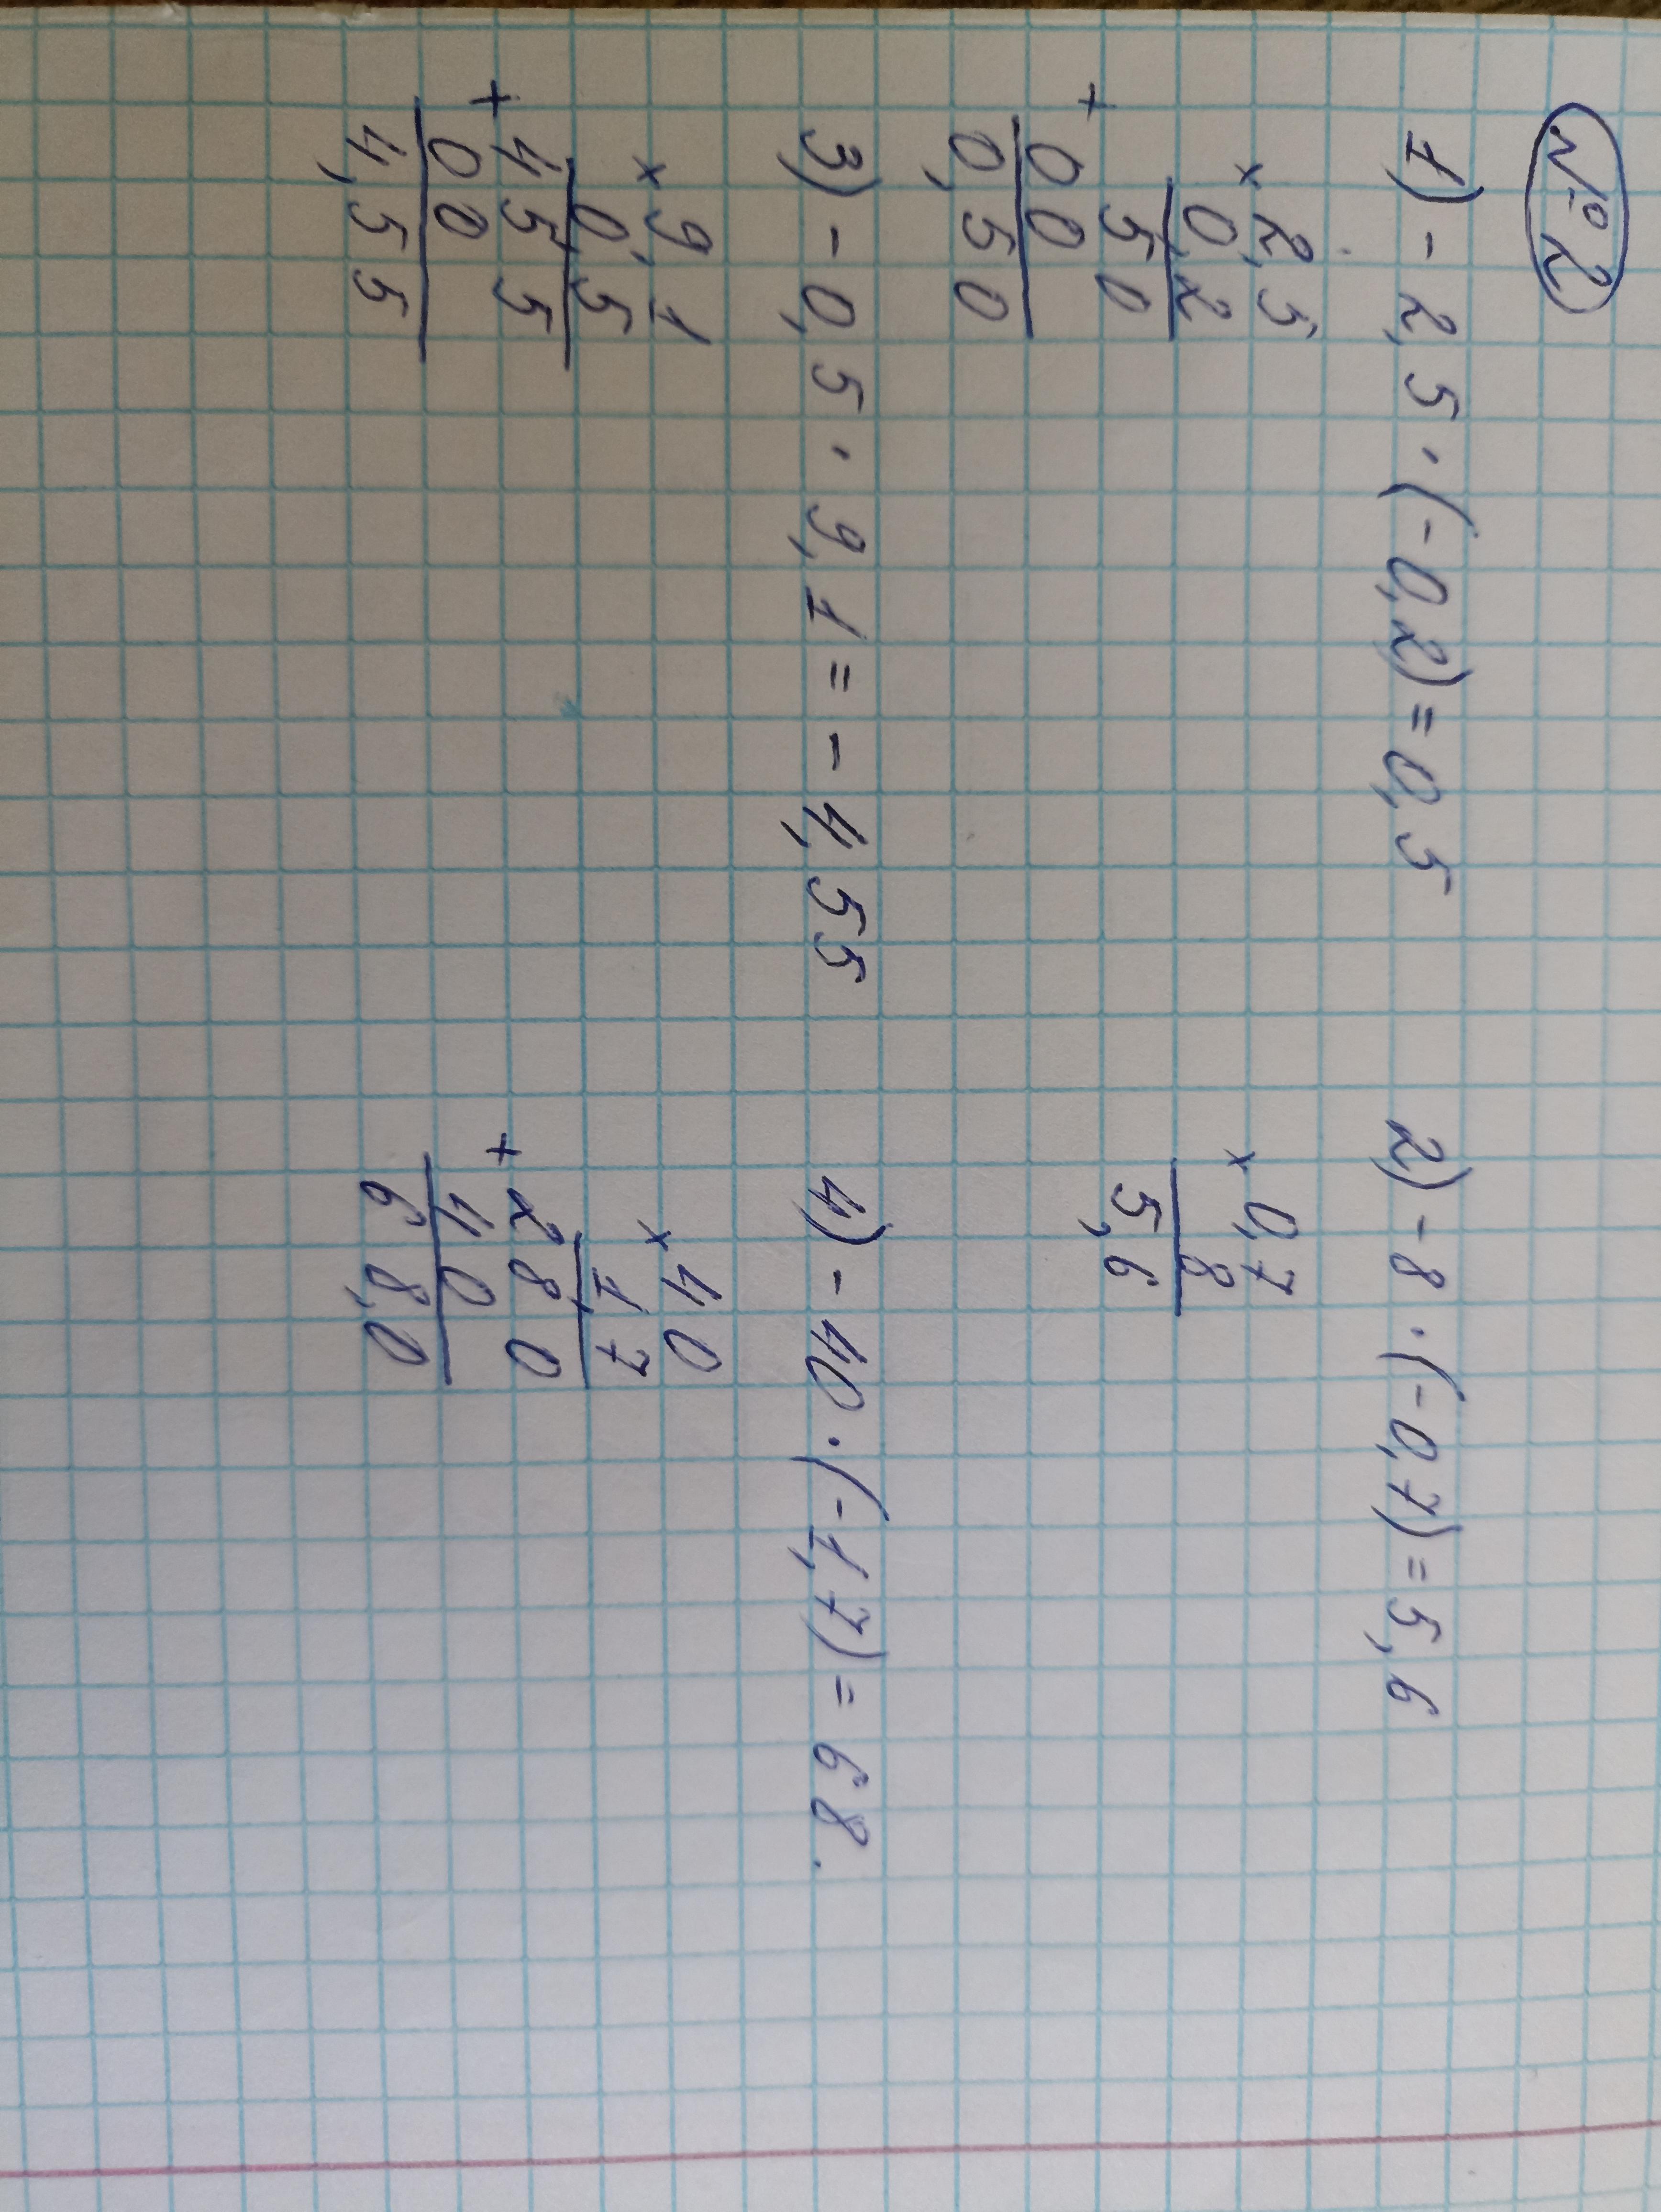 №2
1) - 2,5 · (-0,2) = 0,5
2) - 8 · (-0,7) = 5,6
× 2,5
0,2
+ 50
00
0,50
× 0,7
8
5,6
3) - 0,5 · 9,1 = - 4,55
4) - 40 · (-1,7) = 68.
× 9,1
0,5
+ 455
00
4,55
× 40
1,7
+ 280
40
68,0